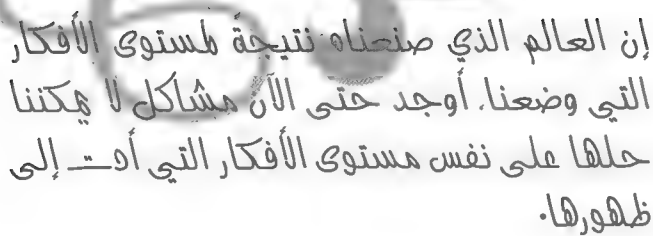 إن العالم الذي صنعناه نتيجةً لمستوى الأفكار
التي وضعنا. أوجد حتى الآن مشاكل لا يمكننا
حلها على نفس مستوى الأفكار التي أدت إلى
ظهورها.